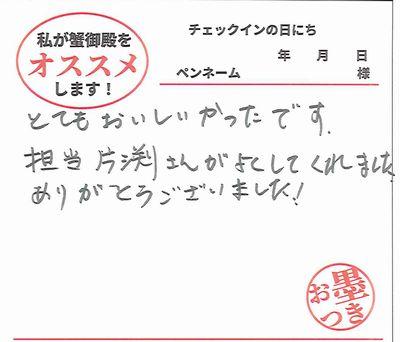 私が蟹御殿を
オススメ
します！
チェックインの日にち
年 月 日
ペンネーム 様
とてもおいしいかったです.
担当片渕さんがよくしてくれました
ありがとうございました!
お墨
つき